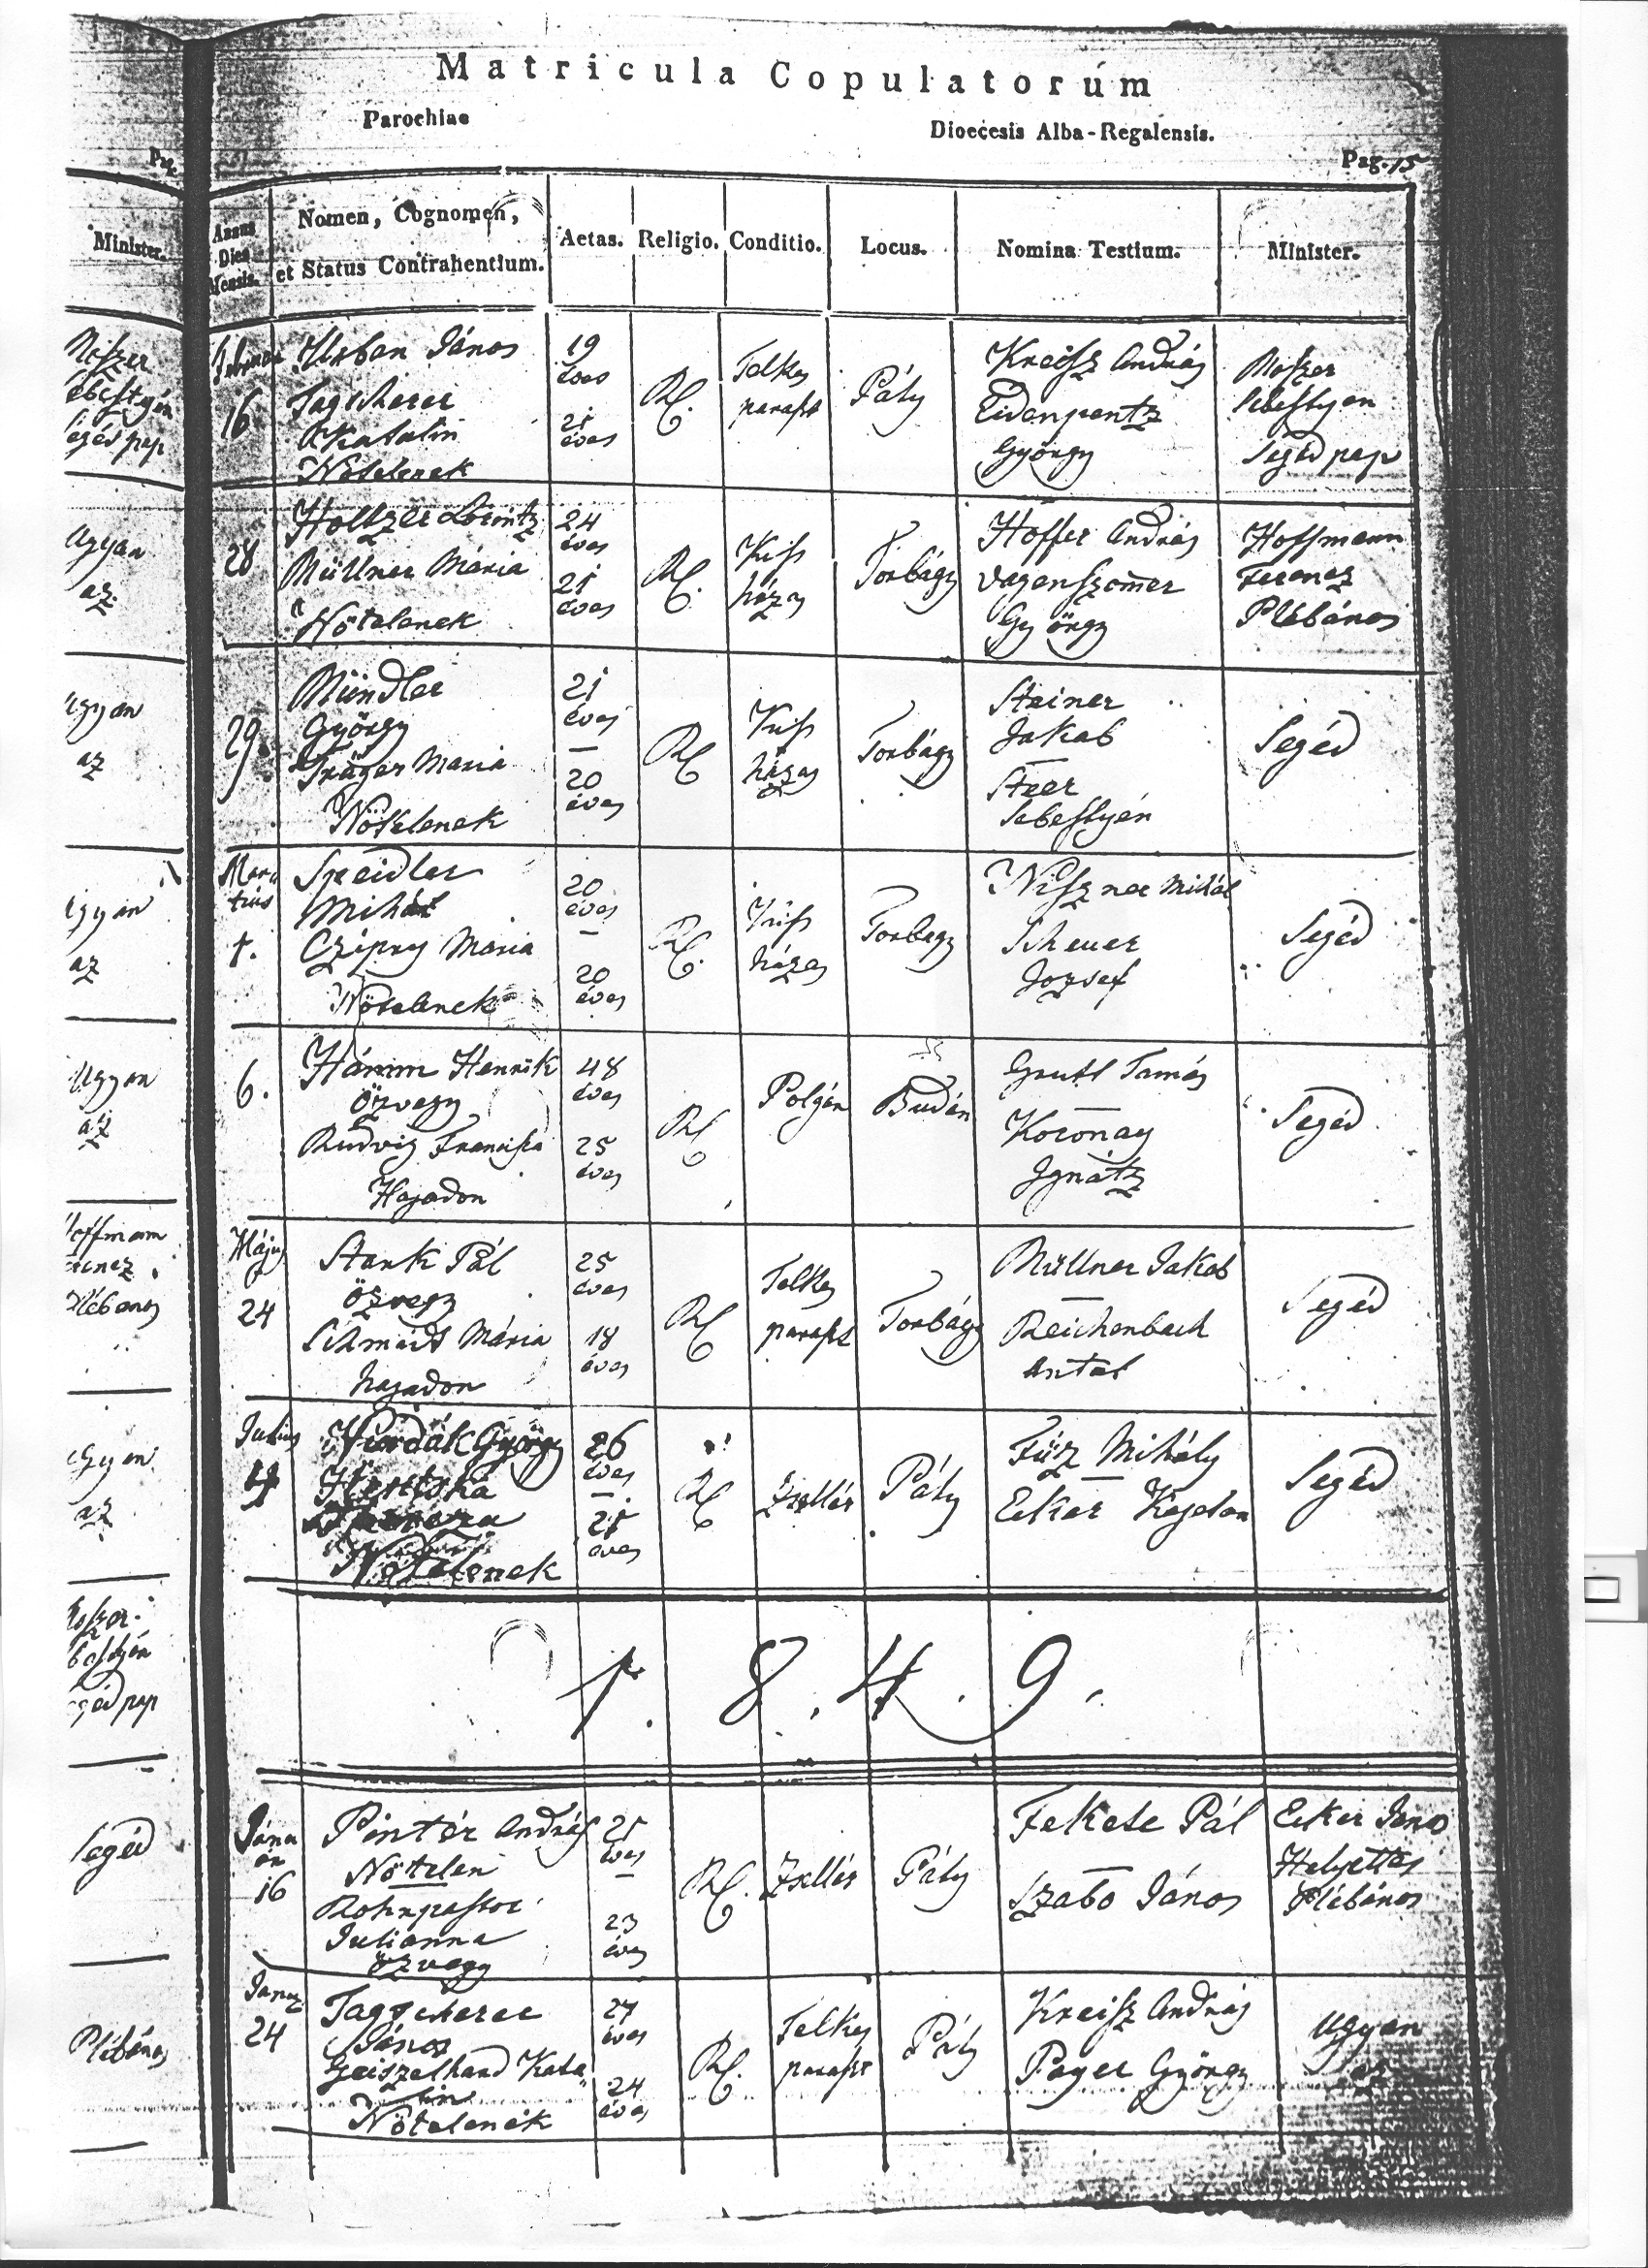 Matricula Copulatorúm
Parochiae
Dioecesis Alba-Regalensis.
Pag.
Pag. 15
Minister.
Annus
Dies
Mensis.
Nomen, Cognomen,
et Status Contrahentium.
Aetas.
Religio.
Conditio.
Locus.
Nomina Testium.
Minister.
16
Urban János
Tagscherer
Katalin
Nőtelenek
19
éves
21
éves
RC.
Telkes
paraszt
Páty
Kreisz András
Eidenpentz
György
Moszer
Sebestyen
Segéd pap
28
Holtzer Lörintz
Müllner Mária
Nőtelenek
24
éves
21
éves
RC.
Kiss
házas
Torbágy
Hoffer András
Vagenszomer
György
Hoffmann
Ferencz
Plébános
29.
Mündler
György
Träger Maria
Nőtelenek
21
éves
20
éves
RC
Kiss
házas
Torbágy
Steiner
Jakab
Steer
Sebestyén
Segéd
Mar
tius
1.
Speidler
Mihál
Czípry Maria
Nőtelenek
20
éves
20
éves
RC.
Kiss
házas
Torbagy
Niszner Mihál
Scheuer
Jozsef
Segéd
6.
Hámm Henrik
Özvegy
Rudvig Franciska
Hajadon
48
éves
25
éves
RC
Polgár
Budán
Grutl Tamás
Koronay
Ignátz
Segéd
Május
24
Stark Pál
özvegy
Schmidt Mária
hajadon
25
éves
18
éves
RC
Telkes
paraszt
Torbágy
Müllner Jakab
Reichenbach
Antal
Segéd
Julius
4
Vurdák György
Hrutska
Nőtelenek
26
éves
21
éves
RC
Zsellér
Páty
Füsz Mihály
Ecker Kajetan
Segéd
1.8.4.9.
16
Pintér András
Nőtelen
Rohnpastor
Julianna
özvegy
25
éves
23
éves
RC.
Zsellér
Páty
Fekete Pál
Szabo János
Ecker Jano
Helyettes
Plébános
Janu
24
Tagscherer
János
Geiszelhard Kata
lin
Nőtelenek
27
éves
24
éves
RC.
Telkes
paraszt
Páty
Kreisz András
Payer György
Ugyan
az